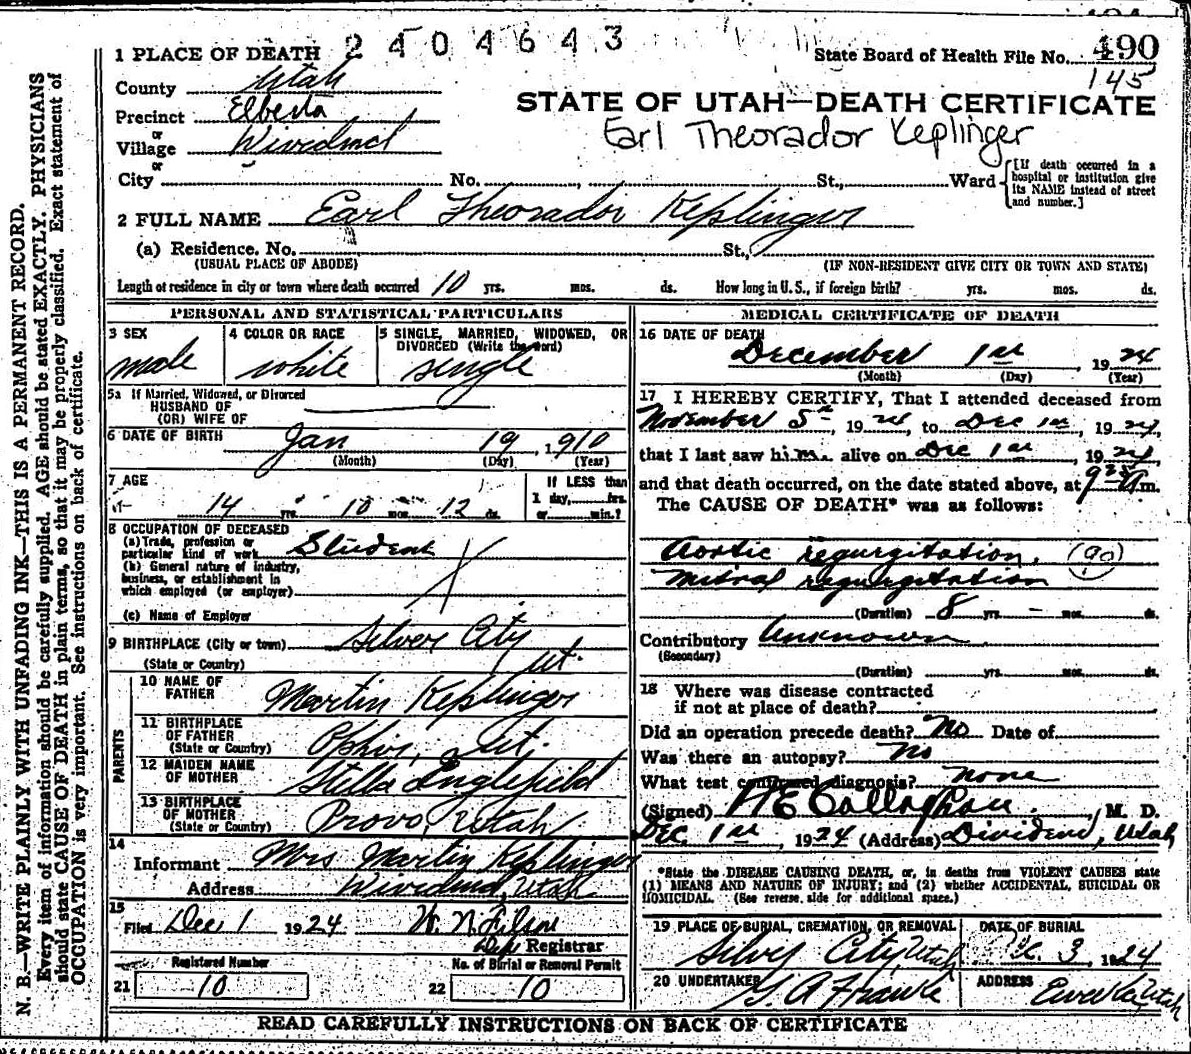 2404643
State Board of Health File No. 490
145
1 PLACE OF DEATH
County Utah
STATE OF UTAH—DEATH CERTIFICATE
Precinct Elberta
Earl Theorador Keplinger
or
Village Dividend
or
City No. St., Ward [If death occurred in a hospital or institution give its NAME instead of street and number.]
2 FULL NAME Earl Theorador Keplinger
(a) Residence. No. St.,
(USUAL PLACE OF ABODE) (IF NON-RESIDENT GIVE CITY OR TOWN AND STATE)
Length of residence in city or town where death occurred 10 yrs. mos. ds. How long in U. S., if foreign birth? yrs. mos. ds.
PERSONAL AND STATISTICAL PARTICULARS
3 SEX
male
4 COLOR OR RACE
white
5 SINGLE, MARRIED, WIDOWED, OR
DIVORCED (Write the word)
single
5a If Married, Widowed, or Divorced
HUSBAND OF
(OR) WIFE OF
6 DATE OF BIRTH Jan 19, 1910
(Month) (Day) (Year)
7 AGE
14 yrs. 10 mos. 12 ds.
If LESS than
1 day, hrs.
or min.?
8 OCCUPATION OF DECEASED
(a) Trade, profession or
particular kind of work Student
(b) General nature of industry,
business, or establishment in
which employed (or employer)
(c) Name of Employer
9 BIRTHPLACE (City or town) Silver City
(State or Country) Ut.
PARENTS
10 NAME OF
FATHER Martin Keplinger
11 BIRTHPLACE
OF FATHER
(State or Country) Ophir, Ut.
12 MAIDEN NAME
OF MOTHER Stella Englefield
13 BIRTHPLACE
OF MOTHER
(State or Country) Provo, Utah
14
Informant Mrs Martin Keplinger
Address Dividend, Utah
15
Filed Dec 1 1924
Registrar
Registered Number
21 10
No. of Burial or Removal Permit
22 10
MEDICAL CERTIFICATE OF DEATH
16 DATE OF DEATH
December 1st, 1924
(Month) (Day) (Year)
17 I HEREBY CERTIFY, That I attended deceased from
November 5th, 1924, to Dec 1st, 1924,
that I last saw him alive on Dec 1st, 1924,
and that death occurred, on the date stated above, at 9 35 A m.
The CAUSE OF DEATH* was as follows:
Aortic regurgitation, (90)
Mitral regurgitation
(Duration) 8 yrs. — mos. ds.
Contributory Unknown
(Secondary)
(Duration) yrs. mos. ds.
18 Where was disease contracted
if not at place of death?
Did an operation precede death? No Date of
Was there an autopsy? No
What test confirmed diagnosis? none
(Signed) H E Callaghan, M. D.
Dec. 1st, 1924 (Address) Dividend, Utah
*State the DISEASE CAUSING DEATH, or, in deaths from VIOLENT CAUSES state
(1) MEANS AND NATURE OF INJURY; and (2) whether ACCIDENTAL, SUICIDAL OR
HOMICIDAL. (See reverse side for additional space.)
19 PLACE OF BURIAL, CREMATION, OR REMOVAL
Silver City, Utah
DATE OF BURIAL
3, 1924
20 UNDERTAKER
ADDRESS
Eureka Utah
READ CAREFULLY INSTRUCTIONS ON BACK OF CERTIFICATE
N. B.—WRITE PLAINLY WITH UNFADING INK—THIS IS A PERMANENT RECORD.
Every item of information should be carefully supplied. AGE should be stated EXACTLY. PHYSICIANS
should state CAUSE OF DEATH in plain terms, so that it may be properly classified. Exact statement of
OCCUPATION is very important. See instructions on back of certificate.